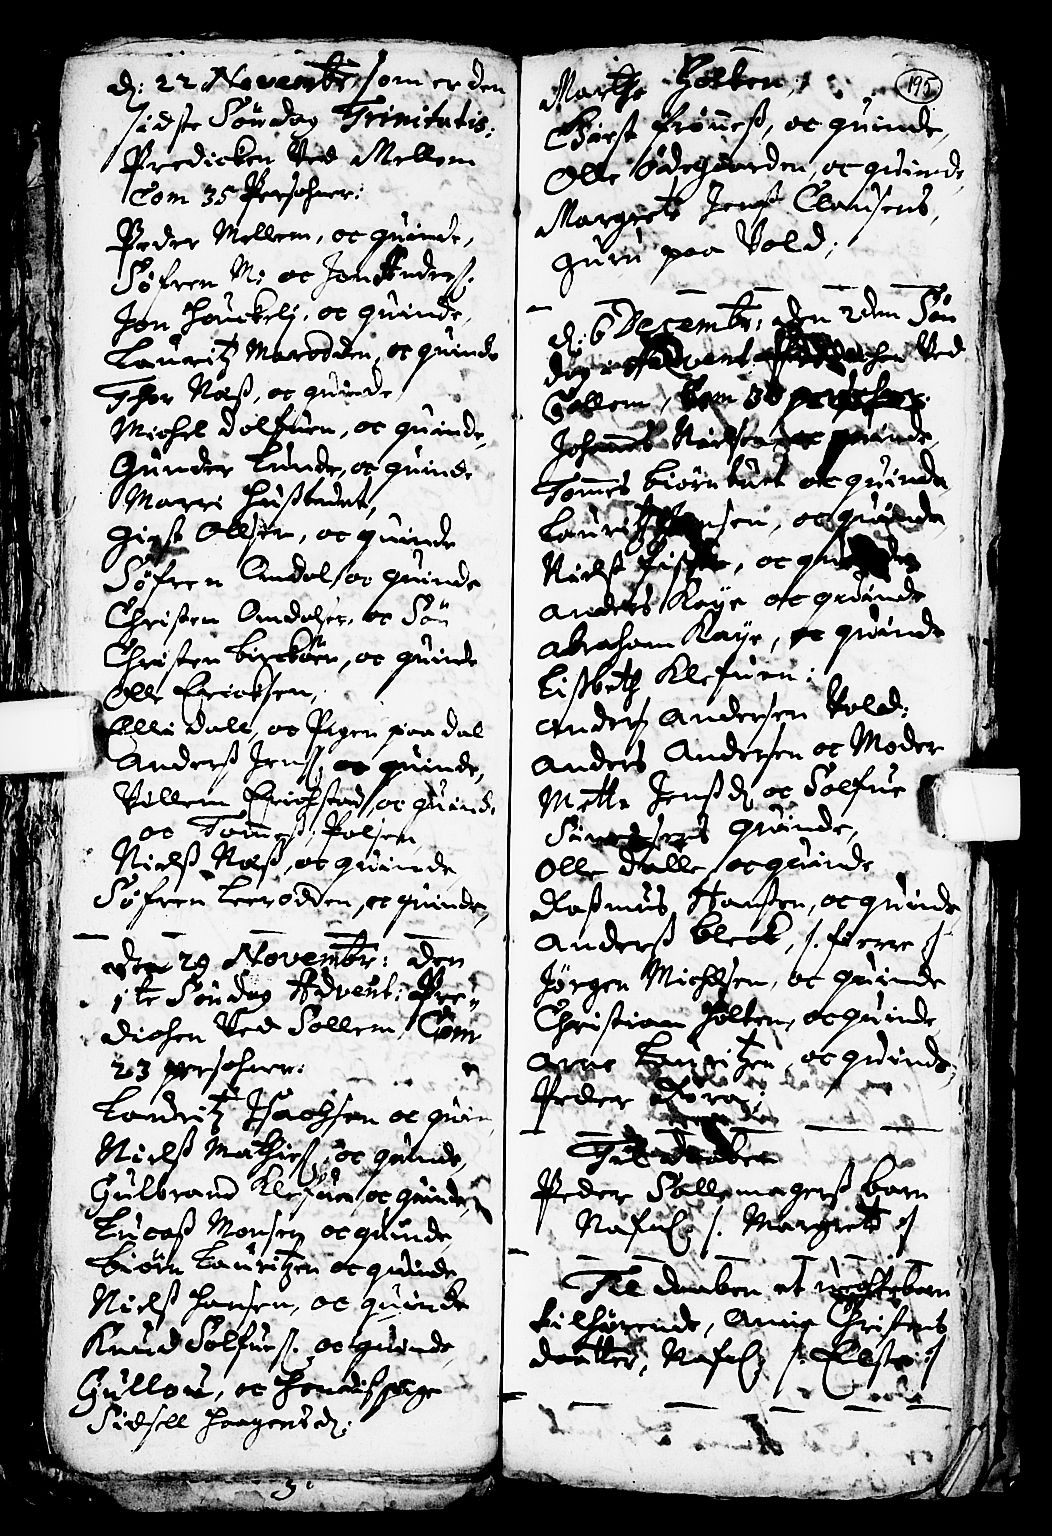 d: 22 Novembr: som er den
sidste Söndag Trinitatis:
Predicken Ved Mellem
Com 35 Persohner:
Peder Mellem, oc quinde,
Söfren M: oc Jon Anders:
Jon Houckelij, oc quinde,
Lauritz Marodden, oc quinde
Thor Næß, oc quinde
Michel Dolfuen, oc quinde,
Gunder Lunde, oc quinde
Marri Hußbadet,
Olsen, oc quinde
Söfren Andols oc quinde
Christen Andolser, oc Sön
Christen Bircköen, oc quinde
Olle Ericksen,
Elli dall, oc Pigen paa dal
Anderß Jenß, oc quinde,
Villem Erichstad, oc quinde
oc Tommeß Polsen
Nielß Næß, oc quinde,
Söfren Leerodden, oc quinde,
Den 29 Novembr: den
1te Söndag Advent: Pre-
dichen Ved Sollem Com
23 persohner:
Lauritz Isachsen oc quin
Nielß Mathieß, oc quinde,
Gulbrand Klefuen oc quinde,
Lucaß Monsen oc quinde,
Biörn Lauritzen oc quinde
Nielß Hansen, oc quinde
Knud Solfueß: oc quinde,
Gullou, oc pige
Sidsell Haagensd:
195
Marthe Holten;
oc quinde,
Olle Ödegaarden, oc quinde,
Margrete Jenß Clausens,
guru paa Vold;
d: 6 Decembr: den 2den Sön
dag Advent Ved
Sollem, Com 38
Johannes Nielsen oc quinde,
Tommes Biörntuet oc quinde,
Lauritz Hansen, oc quinde
Nielß, oc quinde
Anders Kaye oc quinde
Abraham Kaye, oc quinde
Lisbeth Klefuen:
Anders Andersen Vold:
Anders Andersen oc Moder
Mette Jenßd: oc Solfue
quinde,
Olle dalle oc quinde
Raßmus Hansen, oc quinde
Anderß Bleck, /: fierre :/
Jörgen Michelsen, oc quinde
Christian Holten, oc quinde,
Arne Lauritzen, oc quinde;
Peder
Til daaben
Peder Sollemagerß barn
Nafnl: /: Margrete :/
Til daaben et uechtebarn
tilhörende, Anne Christens
daatter, Nafnl: /: Elise :/